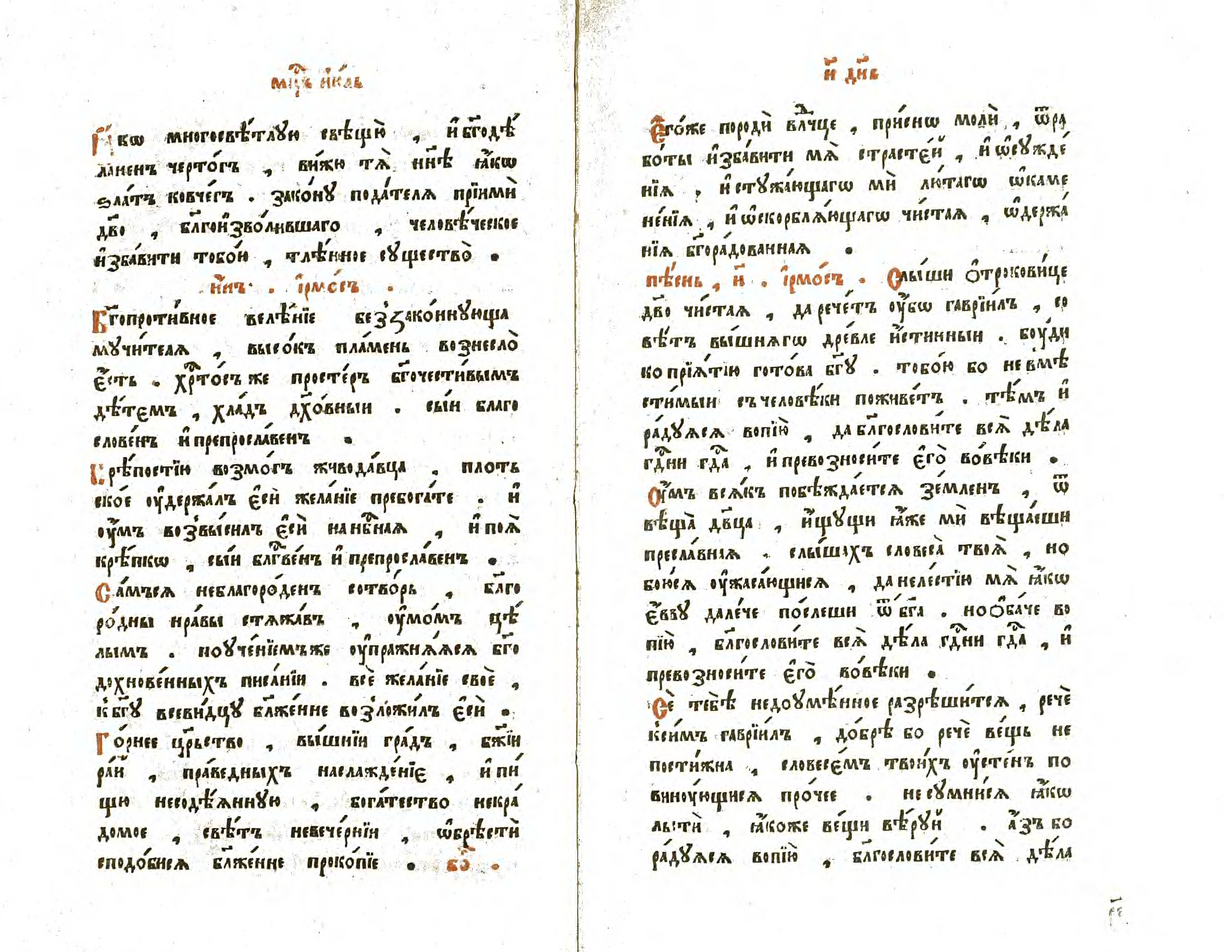 мцⷭ҇ъ і҆ю́ль
Ꙗ҆́кѡ многосвѣ́тлую свѣщꙋ̀ , и҆ бг҃одѣ́
ланенъ черто́гъ , ви́жю тѧ̀ нн҃ѣ ꙗ҆́кѡ
ѕла́тъ ковче́гъ . зако́нꙋ пода́телѧ прїимѝ
дв҃о , бл҃гоизво́лившаго , человѣ́ческое
и҆зба́вити тобо́ю , тлѣ́нное сꙋщество̀ .
и҆́нъ . і҆рмо́съ .
Бг҃опроти́вное велѣ́нїе беззако́ннующа
мꙋчи́телѧ , высо́къ пла́мень вознесло̀
є҆́сть . хрⷭ҇то́съ же просте́ръ бг҃очести́вымъ
дѣ́темъ , хла́дъ дх҃о́вныи . сы́и благо
слове́нъ и҆ препросла́венъ .
Крѣ́постїю возмо́гъ живода́вца , плоть
ское ᲂу҆держа́лъ є҆сѝ жела́нїе пребога́те . и҆
ᲂу҆́мъ возвы́силъ є҆сѝ на нбⷭ҇наѧ , и҆ поѧ̀
крѣ́пкѡ , сы́и блгⷭ҇ве́нъ и҆ препросла́венъ .
Са́мъсѧ неблагоро́денъ сотво́рь , бл҃го
ро́дны нра́вы стѧжа́въ , ᲂу҆мо́мъ цѣ́
лымъ . поꙋче́нїемъже ᲂу҆пражнѧ́ѧсѧ бг҃о
дохнове́нныхъ писа́нїи . всѐ жела́нїе своѐ ,
к бг҃ꙋ всеви́дцꙋ бл҃же́нне возложи́лъ є҆сѝ .
Го́рнее црⷭ҇ьство , вы́шнїи гра́дъ , бж҃їи
ра́й , пра́ведныхъ наслажде́нїе , и҆ пи́
щю несодѣ́ѧнную , бога́тество некра́
домое , свѣ́тъ невече́рнїи , ѡ҆брѣстѝ
сподо́бисѧ бл҃же́нне проко́пїе . бо҃ .
и҃ дн҃ь
Є҆го́же породѝ влⷣчце , при́снѡ молѝ , ѿ ра
бо́ты и҆зба́вити мѧ̀ страсте́й , и҆ ѡ҆сꙋжде́
нїѧ , и҆ стꙋжа́ющагѡ мѝ лю́тагѡ ѡ҆каме
не́нїѧ , и҆ ѡ҆скорблѧ́ющагѡ чи́стаѧ , ѡ҆держа́
нїѧ бг҃ора́дованнаѧ .
пѣ́снь , и҃ . і҆рмо́съ . Слы́ши ѻ҆трокови́це
дв҃о чи́стаѧ , да рече́тъ ᲂу҆́бѡ гаврїи́лъ , со
вѣ́тъ вы́шнѧгѡ дре́вле и҆́стинныи . бꙋ́ди
ко прїѧ́тїю гото́ва бг҃ꙋ . тобо́ю бо невмѣ
сти́мыи съ человѣ́ки поживе́тъ . тѣ́мъ и҆
ра́дꙋѧсѧ вопїю̀ , да благослови́те всѧ̀ дѣ́ла
гдⷭ҇ни гдⷭ҇а , и҆ превозноси́те є҆го̀ во вѣ́ки .
Оу҆́мъ всѧ́къ побѣжда́етсѧ зе́мленъ , ѿ
вѣща̀ дв҃ца , и҆щꙋщи ꙗ҆́же мѝ вѣща́еши
пресла́внаѧ . слы́шахъ словеса̀ твоѧ̀ , но
бою́сѧ ᲂу҆жаса́ющисѧ , да не ле́стїю мѧ̀ ꙗ҆́кѡ
є҆́ввꙋ дале́че по́слеши ѿ бг҃а . но ѻ҆ба́че во
пїю̀ , бл҃гослови́те всѧ̀ дѣ́ла гдⷭ҇ни гдⷭ҇а , и҆
превозноси́те є҆го̀ во вѣ́ки .
Сѐ тебѣ̀ недоꙋмѣ́нное разрѣши́тсѧ , речѐ
к се́имъ гаврїи́лъ , до́брѣ бо речѐ ве́щь не
пости́жна , словесе́мъ твои́хъ ᲂу҆сте́нъ по
винꙋ́ющисѧ про́чее . не сꙋмни́сѧ ꙗ҆́кѡ
льстѝ , ꙗ҆́коже ве́щи вѣ́рꙋй . а҆́зъ бо
ра́дꙋѧсѧ вопїю̀ , бл҃гослови́те всѧ̀ дѣ́ла